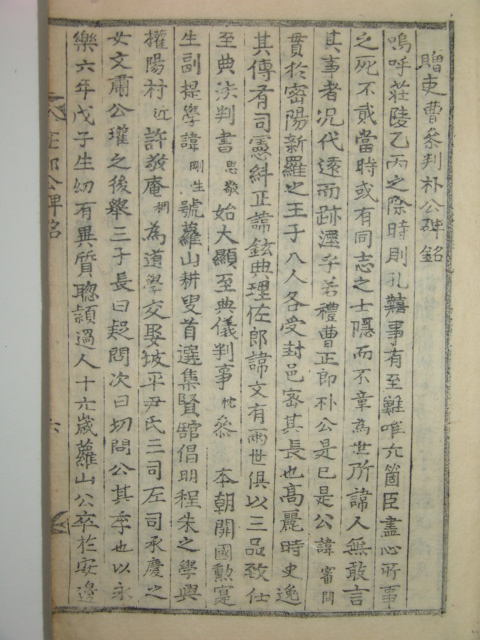 贈吏曹參判朴公碑銘
嗚呼莊陵乙丙之際時則孔囏事有至難唯六箇臣盡心所事
之死不貳當時或有同志之士隱而不章為世所諱人無敢言
其事者況代遠而跡湮乎若禮曹正郎朴公是已是公諱審問
貫於密陽新羅之王子八人各受封邑密其長也高麗時史逸
其傳有司憲糾正諱鉉典理佐郎諱文有兩世俱以三品致仕
至典法判書思敬始大顯至典儀判事忱參 本朝開國勲寔
生副提學諱剛生號蘿山耕叟首選集賢舘倡明程朱之學與
權陽村近許敬庵稠為道學交娶坡平尹氏三司左司承慶之
女文肅公瓘之後舉三子長曰起問次曰切問公其季也以永
樂六年戊子生幼有異質聰頴過人十六歲蘿山公卒於安邊
公碑銘
六